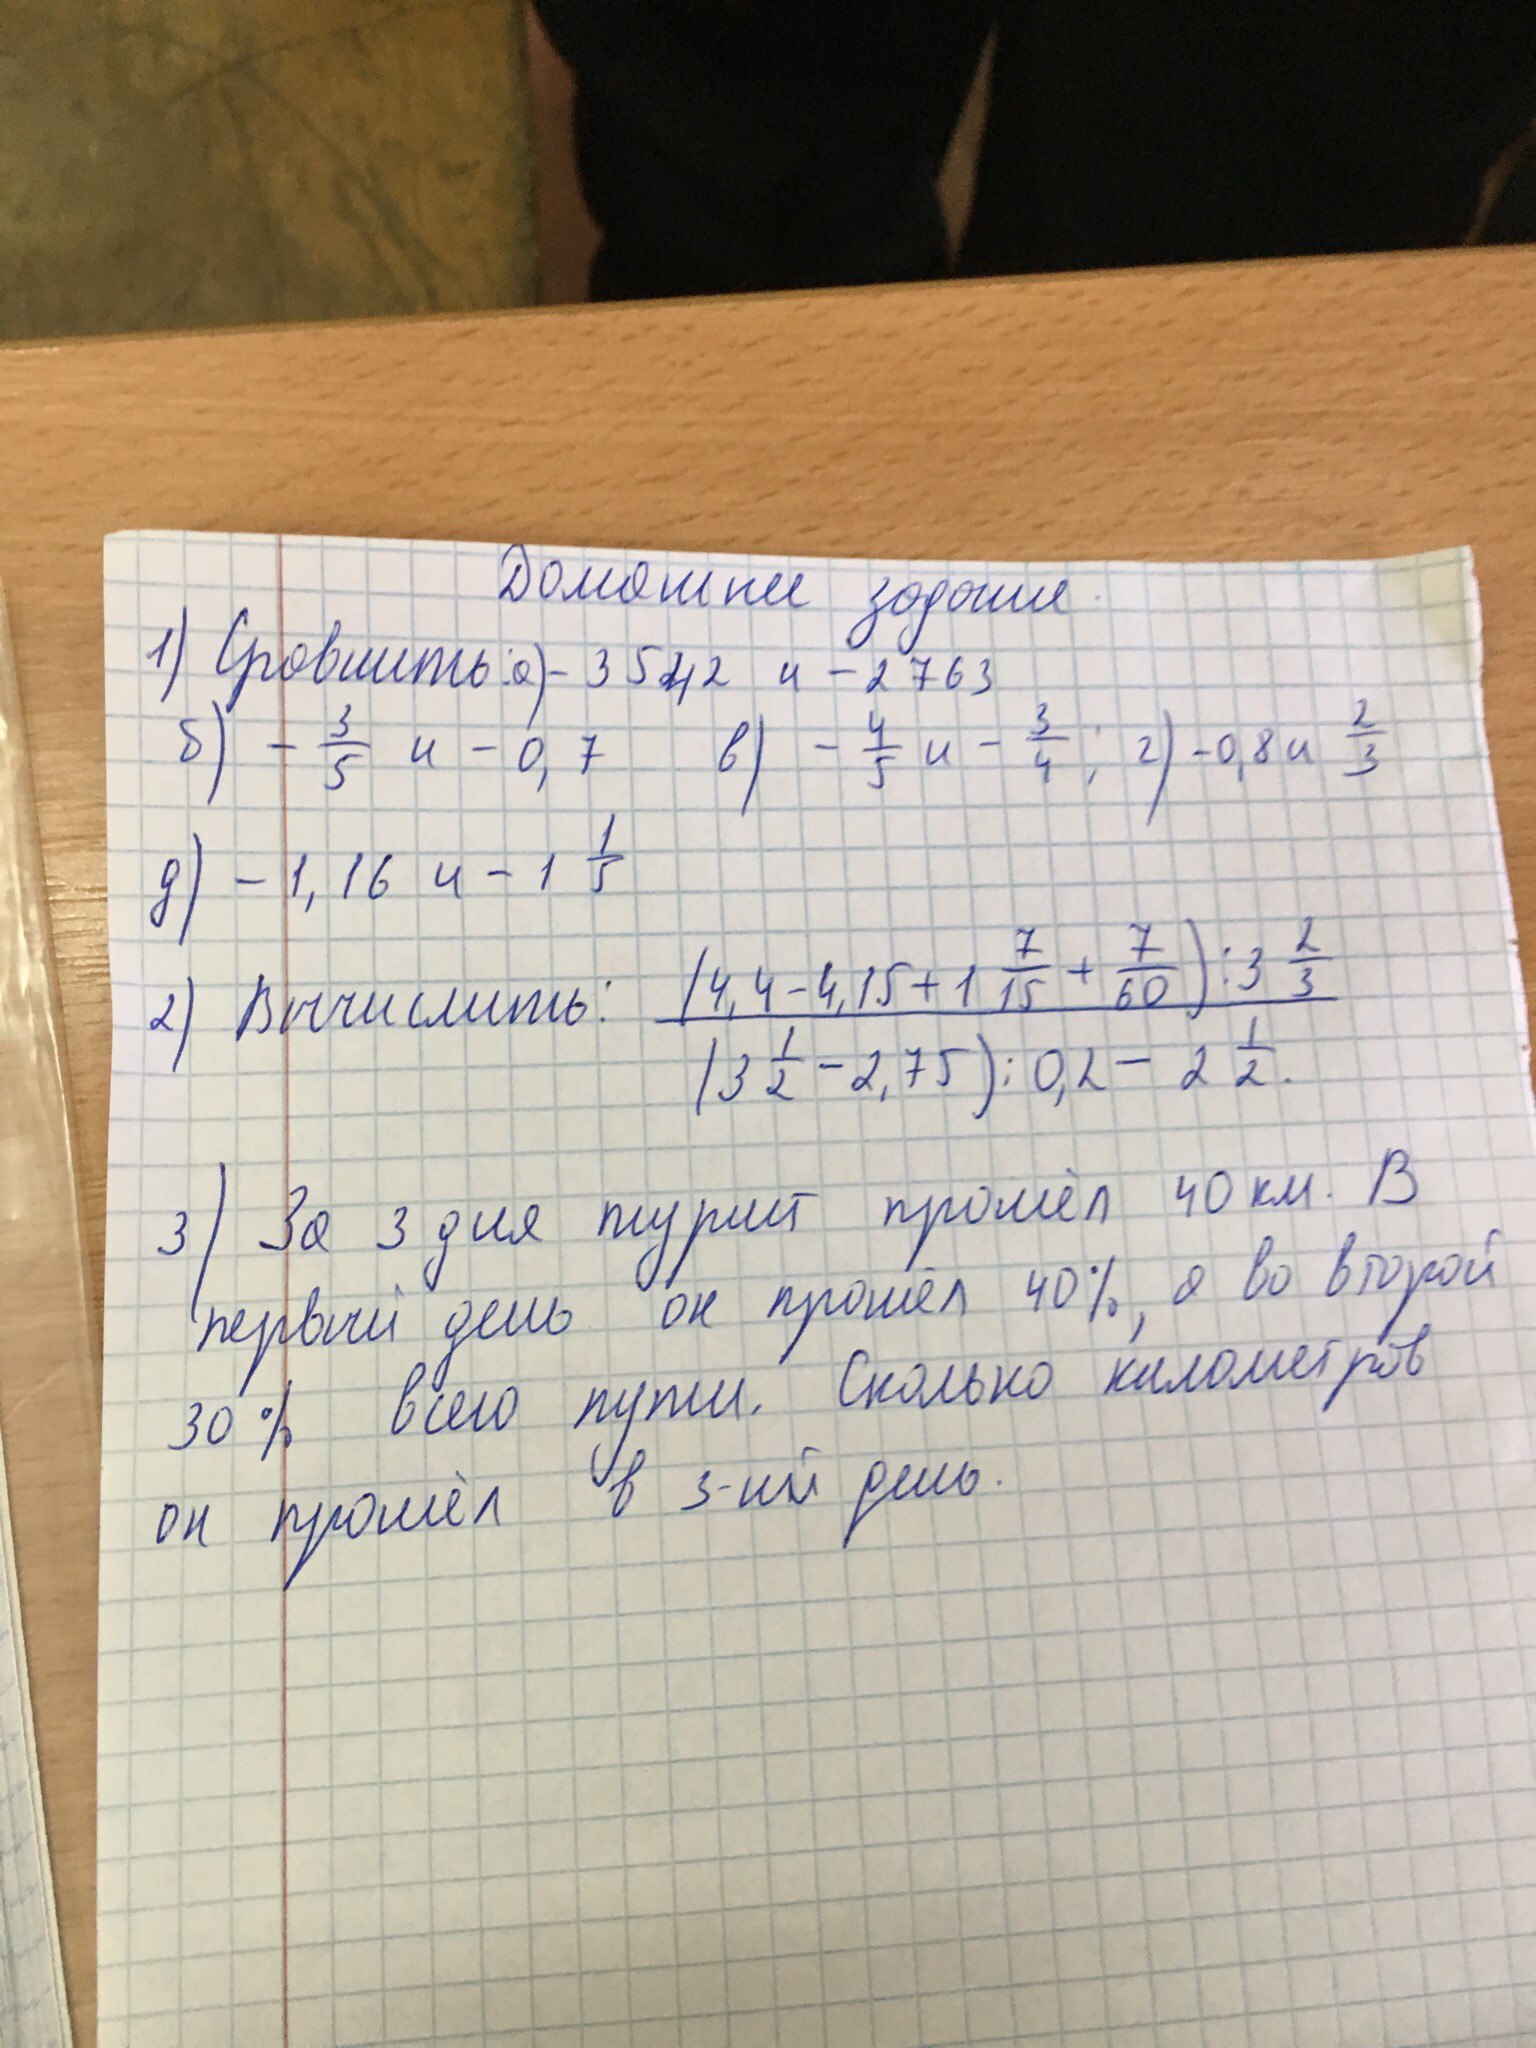 Домашнее задание.
1) Сравнить: а) -3542 и -2763
б) - 3/5 и -0,7 в) - 4/5 и - 3/4; г) -0,8 и 2/3
д) -1,16 и -1 1/5
2) Вычислить: (4,4-4,15+1 7/15 + 7/60):3 2/3
(3 1/2 - 2,75):0,2 - 2 1/2.
3) За 3 дня турист прошёл 40 км. В
первый день он прошёл 40%, а во второй
30% всего пути. Сколько километров
он прошёл в 3-ий день.